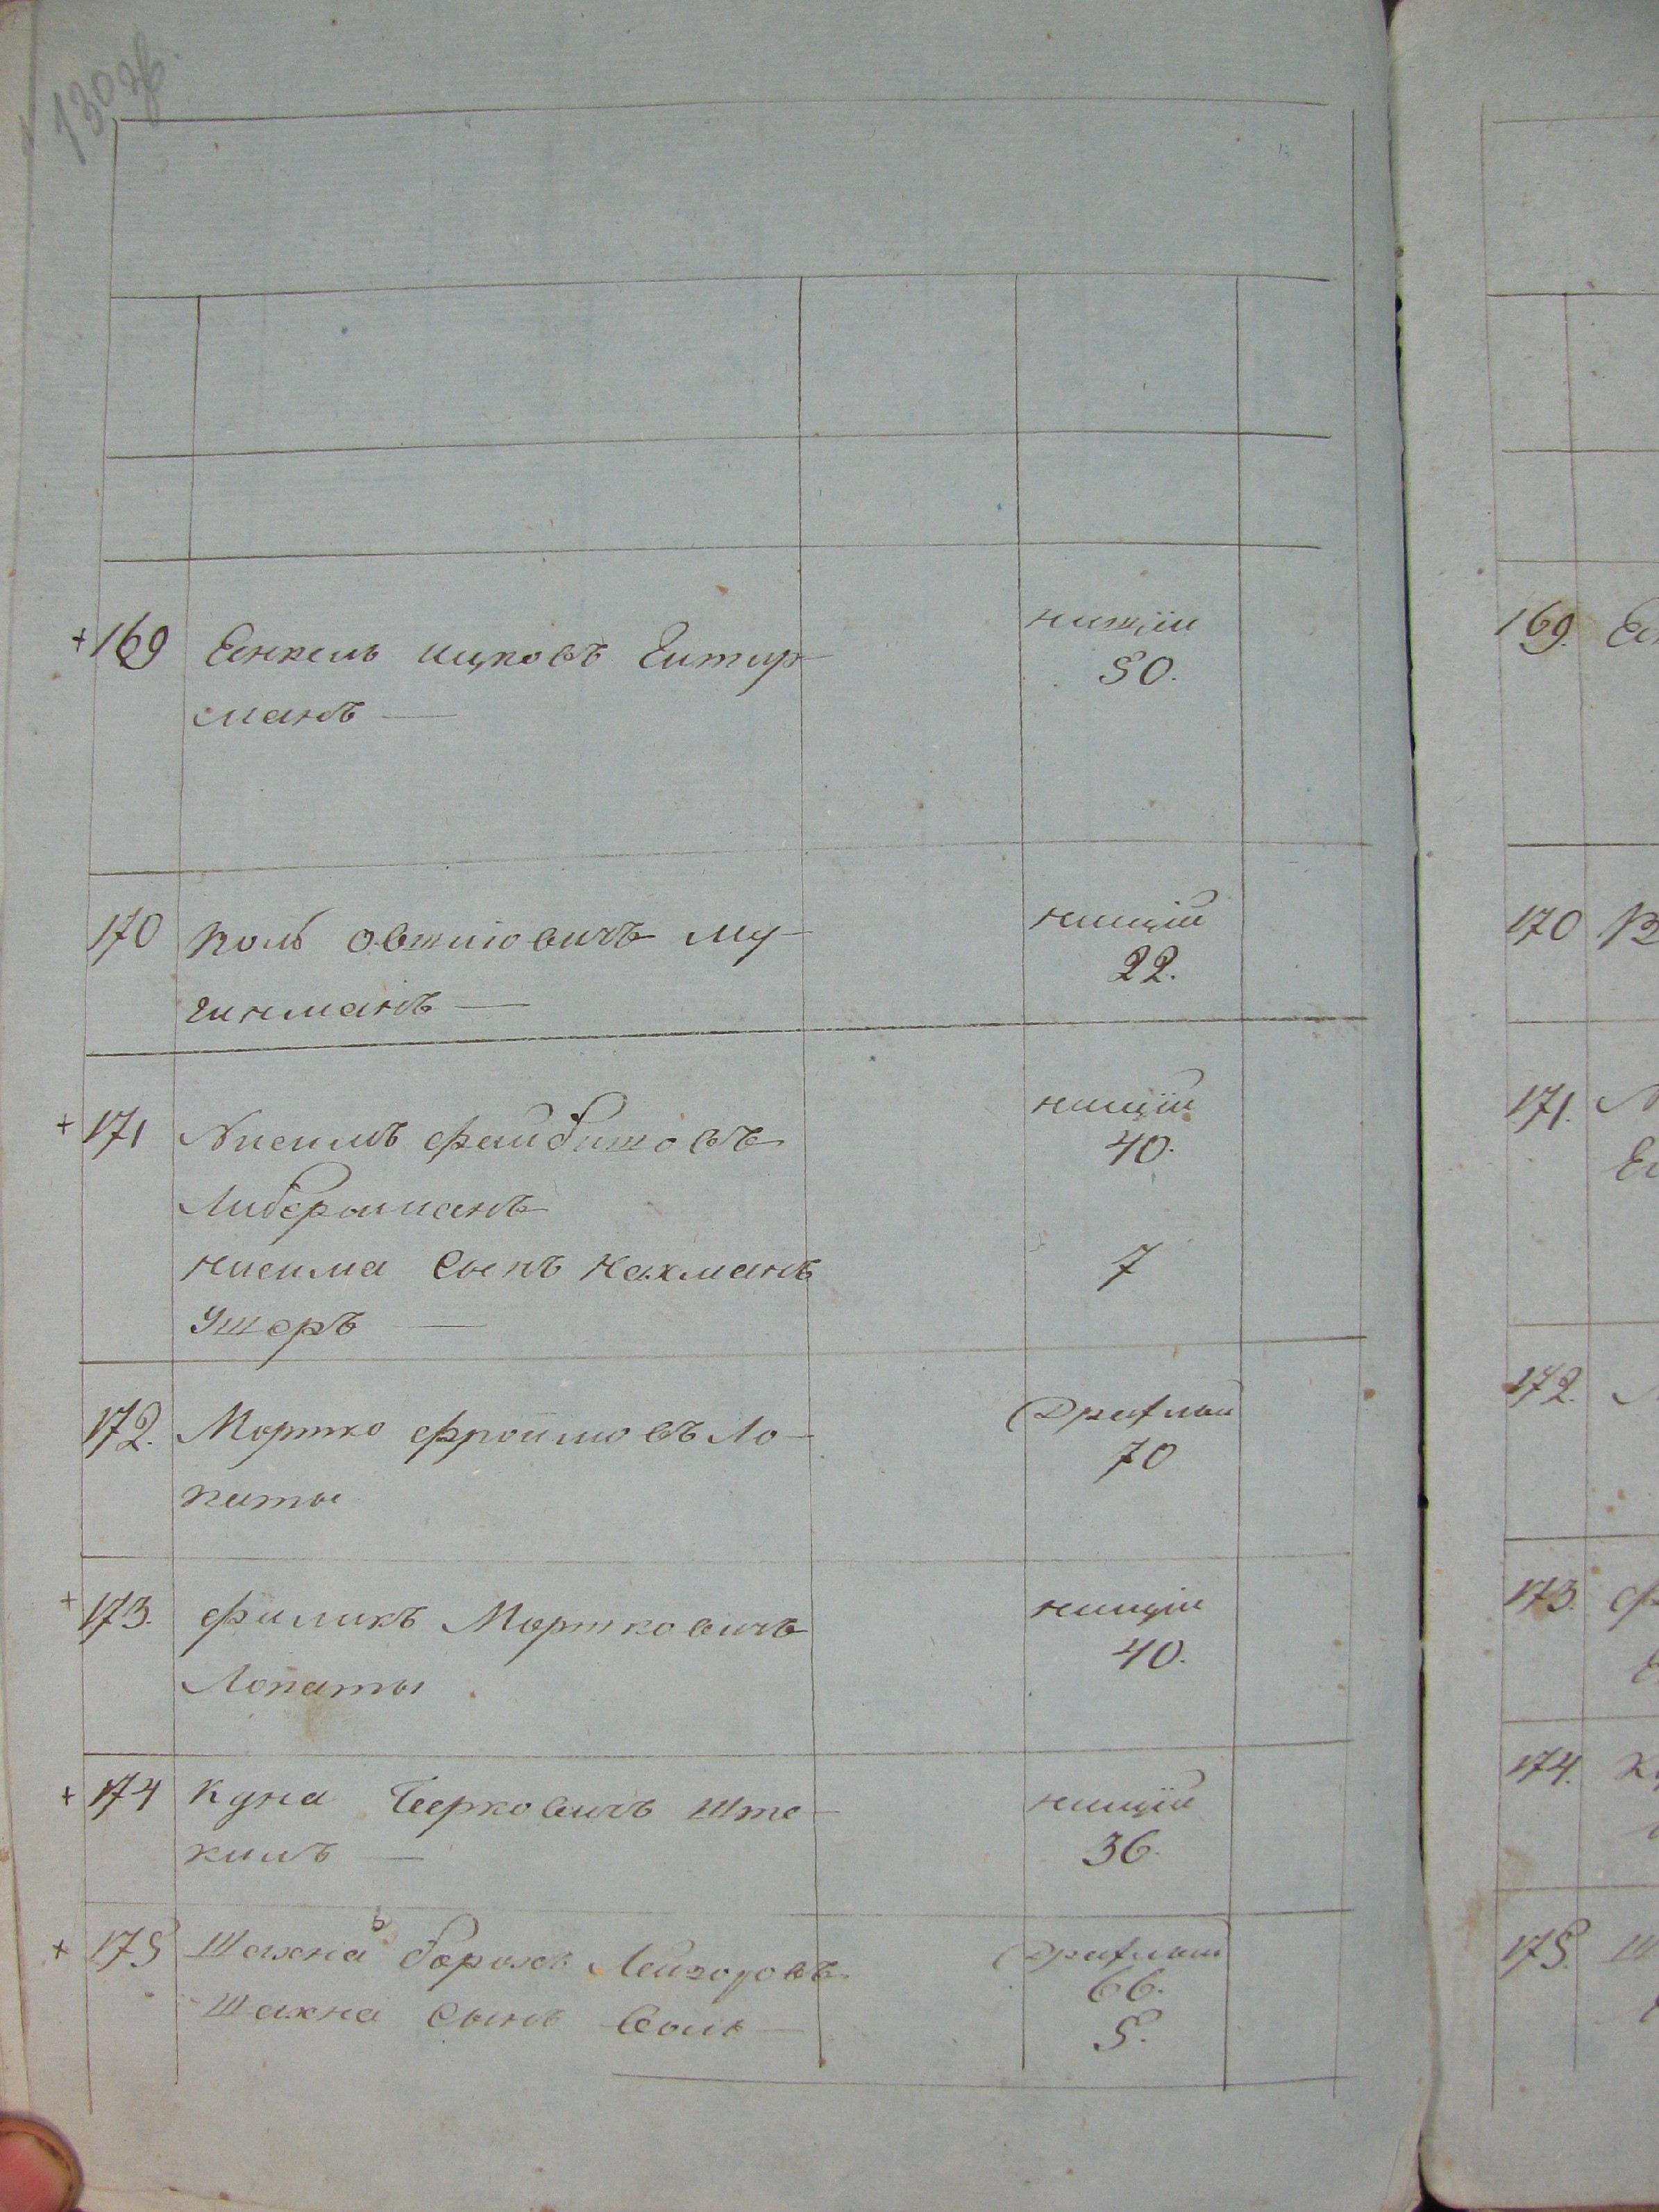 130 об.
+ 169 Еенкель ицковъ Еитир-
манъ —
нищіи
50.
170 Коль овшиіовичъ му-
чинманъ —
нищій
22.
+ 171 Нисимъ файбишовъ
Либерманъ
нисима Сынъ нахманъ
Ушеръ —
нищій
40.
7
172. Мортко фроимовъ Ло-
паты
Дряхлый
70
+ 173. филикъ Мортковичъ
Лопаты
нищіи
40.
+ 174 Куна Берковичъ Ште-
килъ —
нищій
36.
+ 175 Шахна Борохъ Лейзоровъ
Шахна Сынъ —
Дряхлый
66.
5.
169.
170
171.
172.
173.
174.
175.